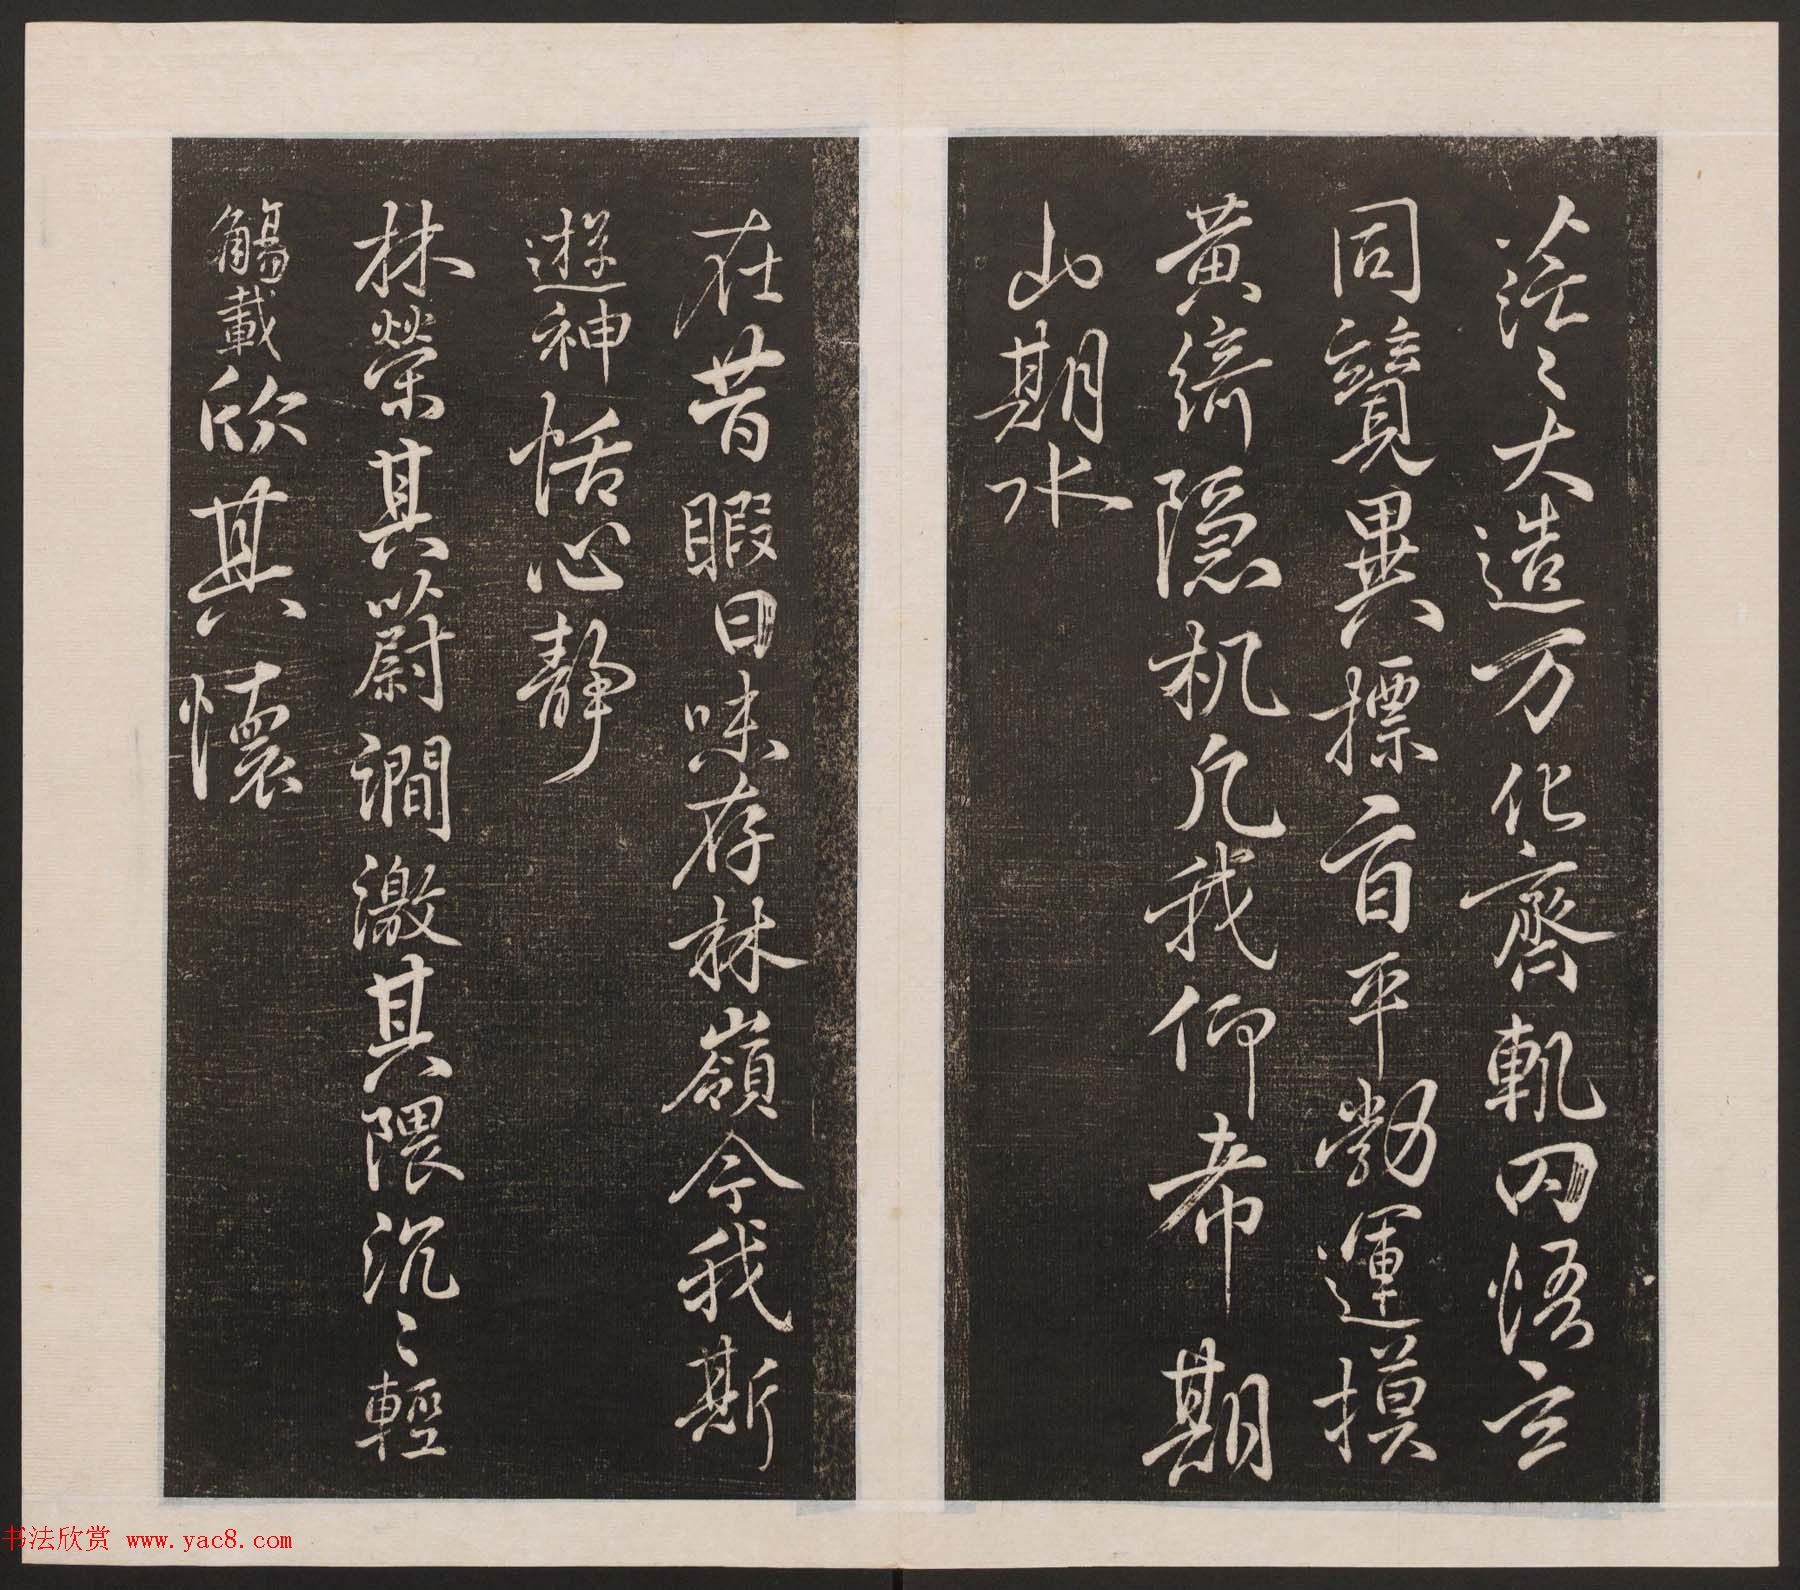 茫〻大造万化齊軌罔悟玄
同競異摽旨平勃運摸
黃綺隱机凡我仰希期
山期水
在昔暇日味存林嶺今我斯
遊神恬心靜
林榮其蔚澗激其隈汎〻輕
觴載欣其懷
书法欣赏 www.yac8.com